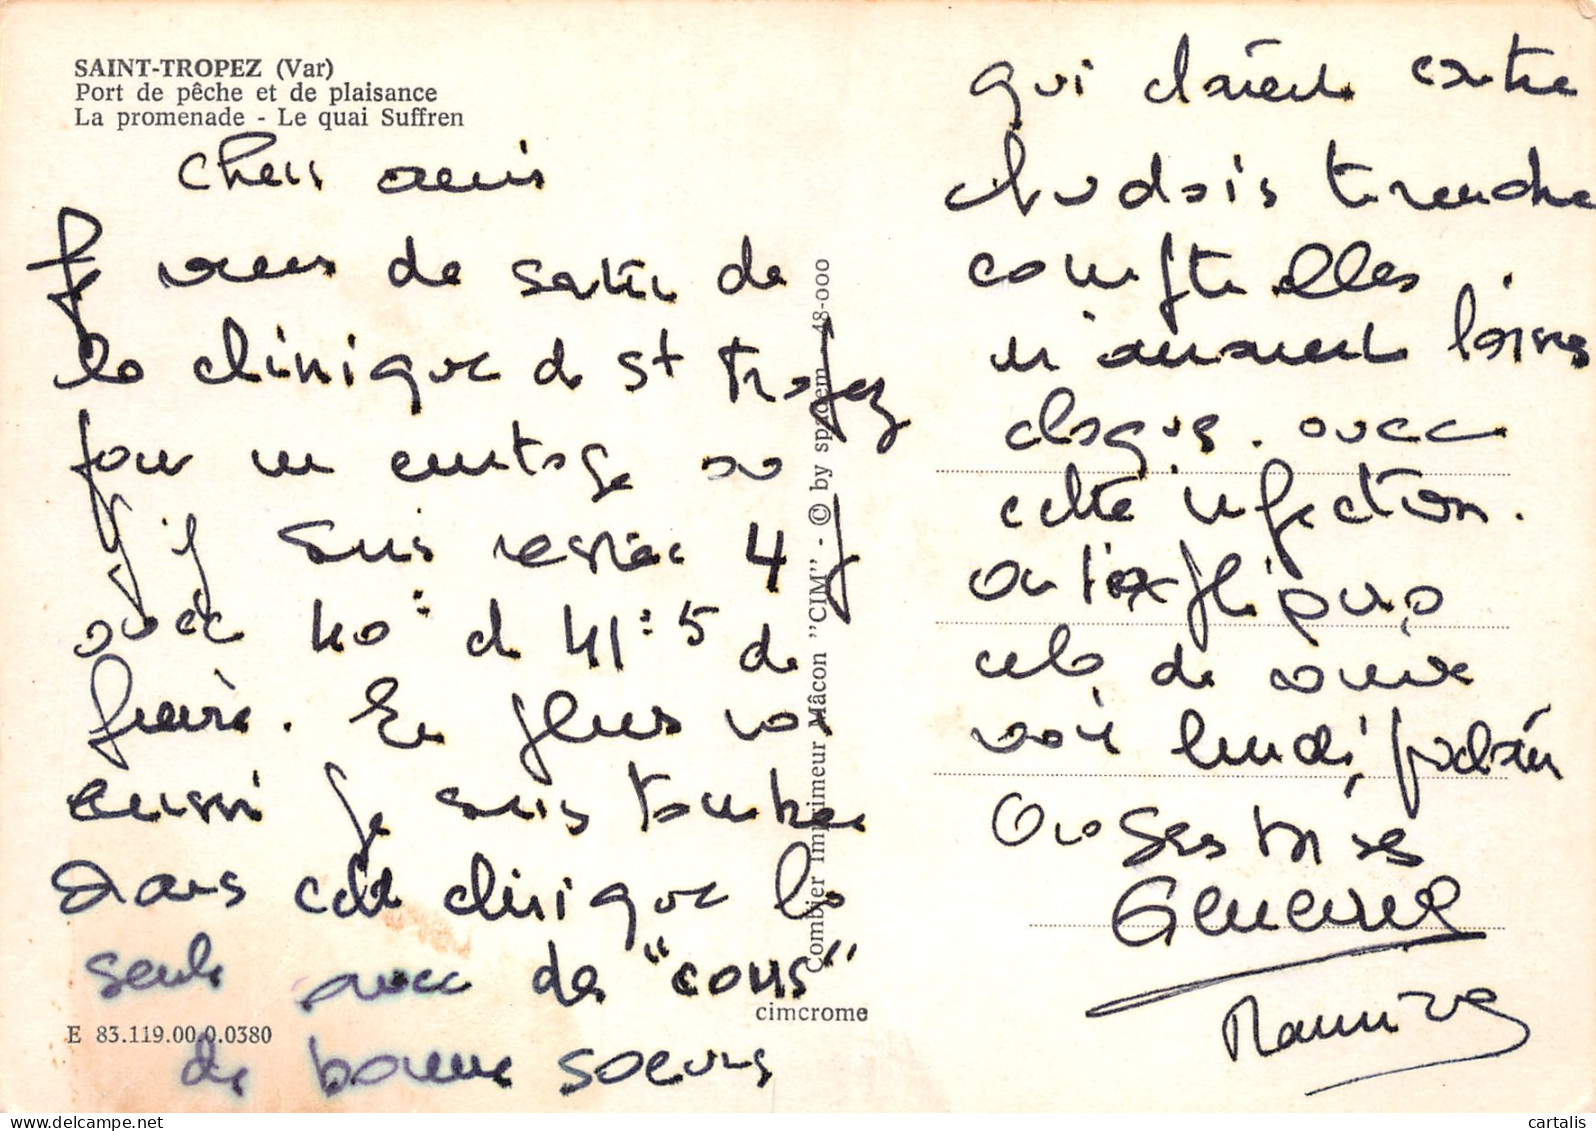 SAINT-TROPEZ (Var)
Port de pêche et de plaisance
La promenade - Le quai Suffren
Chers amis
Je viens de sortir de
la clinique de St Tropez
pour un curetage au
j'y suis restée 4 j
avec 40° et 41:5 de
fièvre. En plus
aussi je suis tombée
dans cette clinique la
seule avec des "cons"
de bonne soeurs
qui étaient contre
tu dois te rendre
compte elles
m'auraient laissé
avec
cette infection.
cela de vive
voix lundi prochain
Grosses bises
Geneviève
Ramirez
E 83.119.00.0.0380
Combier Imprimeur Mâcon "CIM" - © by spadem 48-000
cimcrome
cartalis
www.delcampe.net